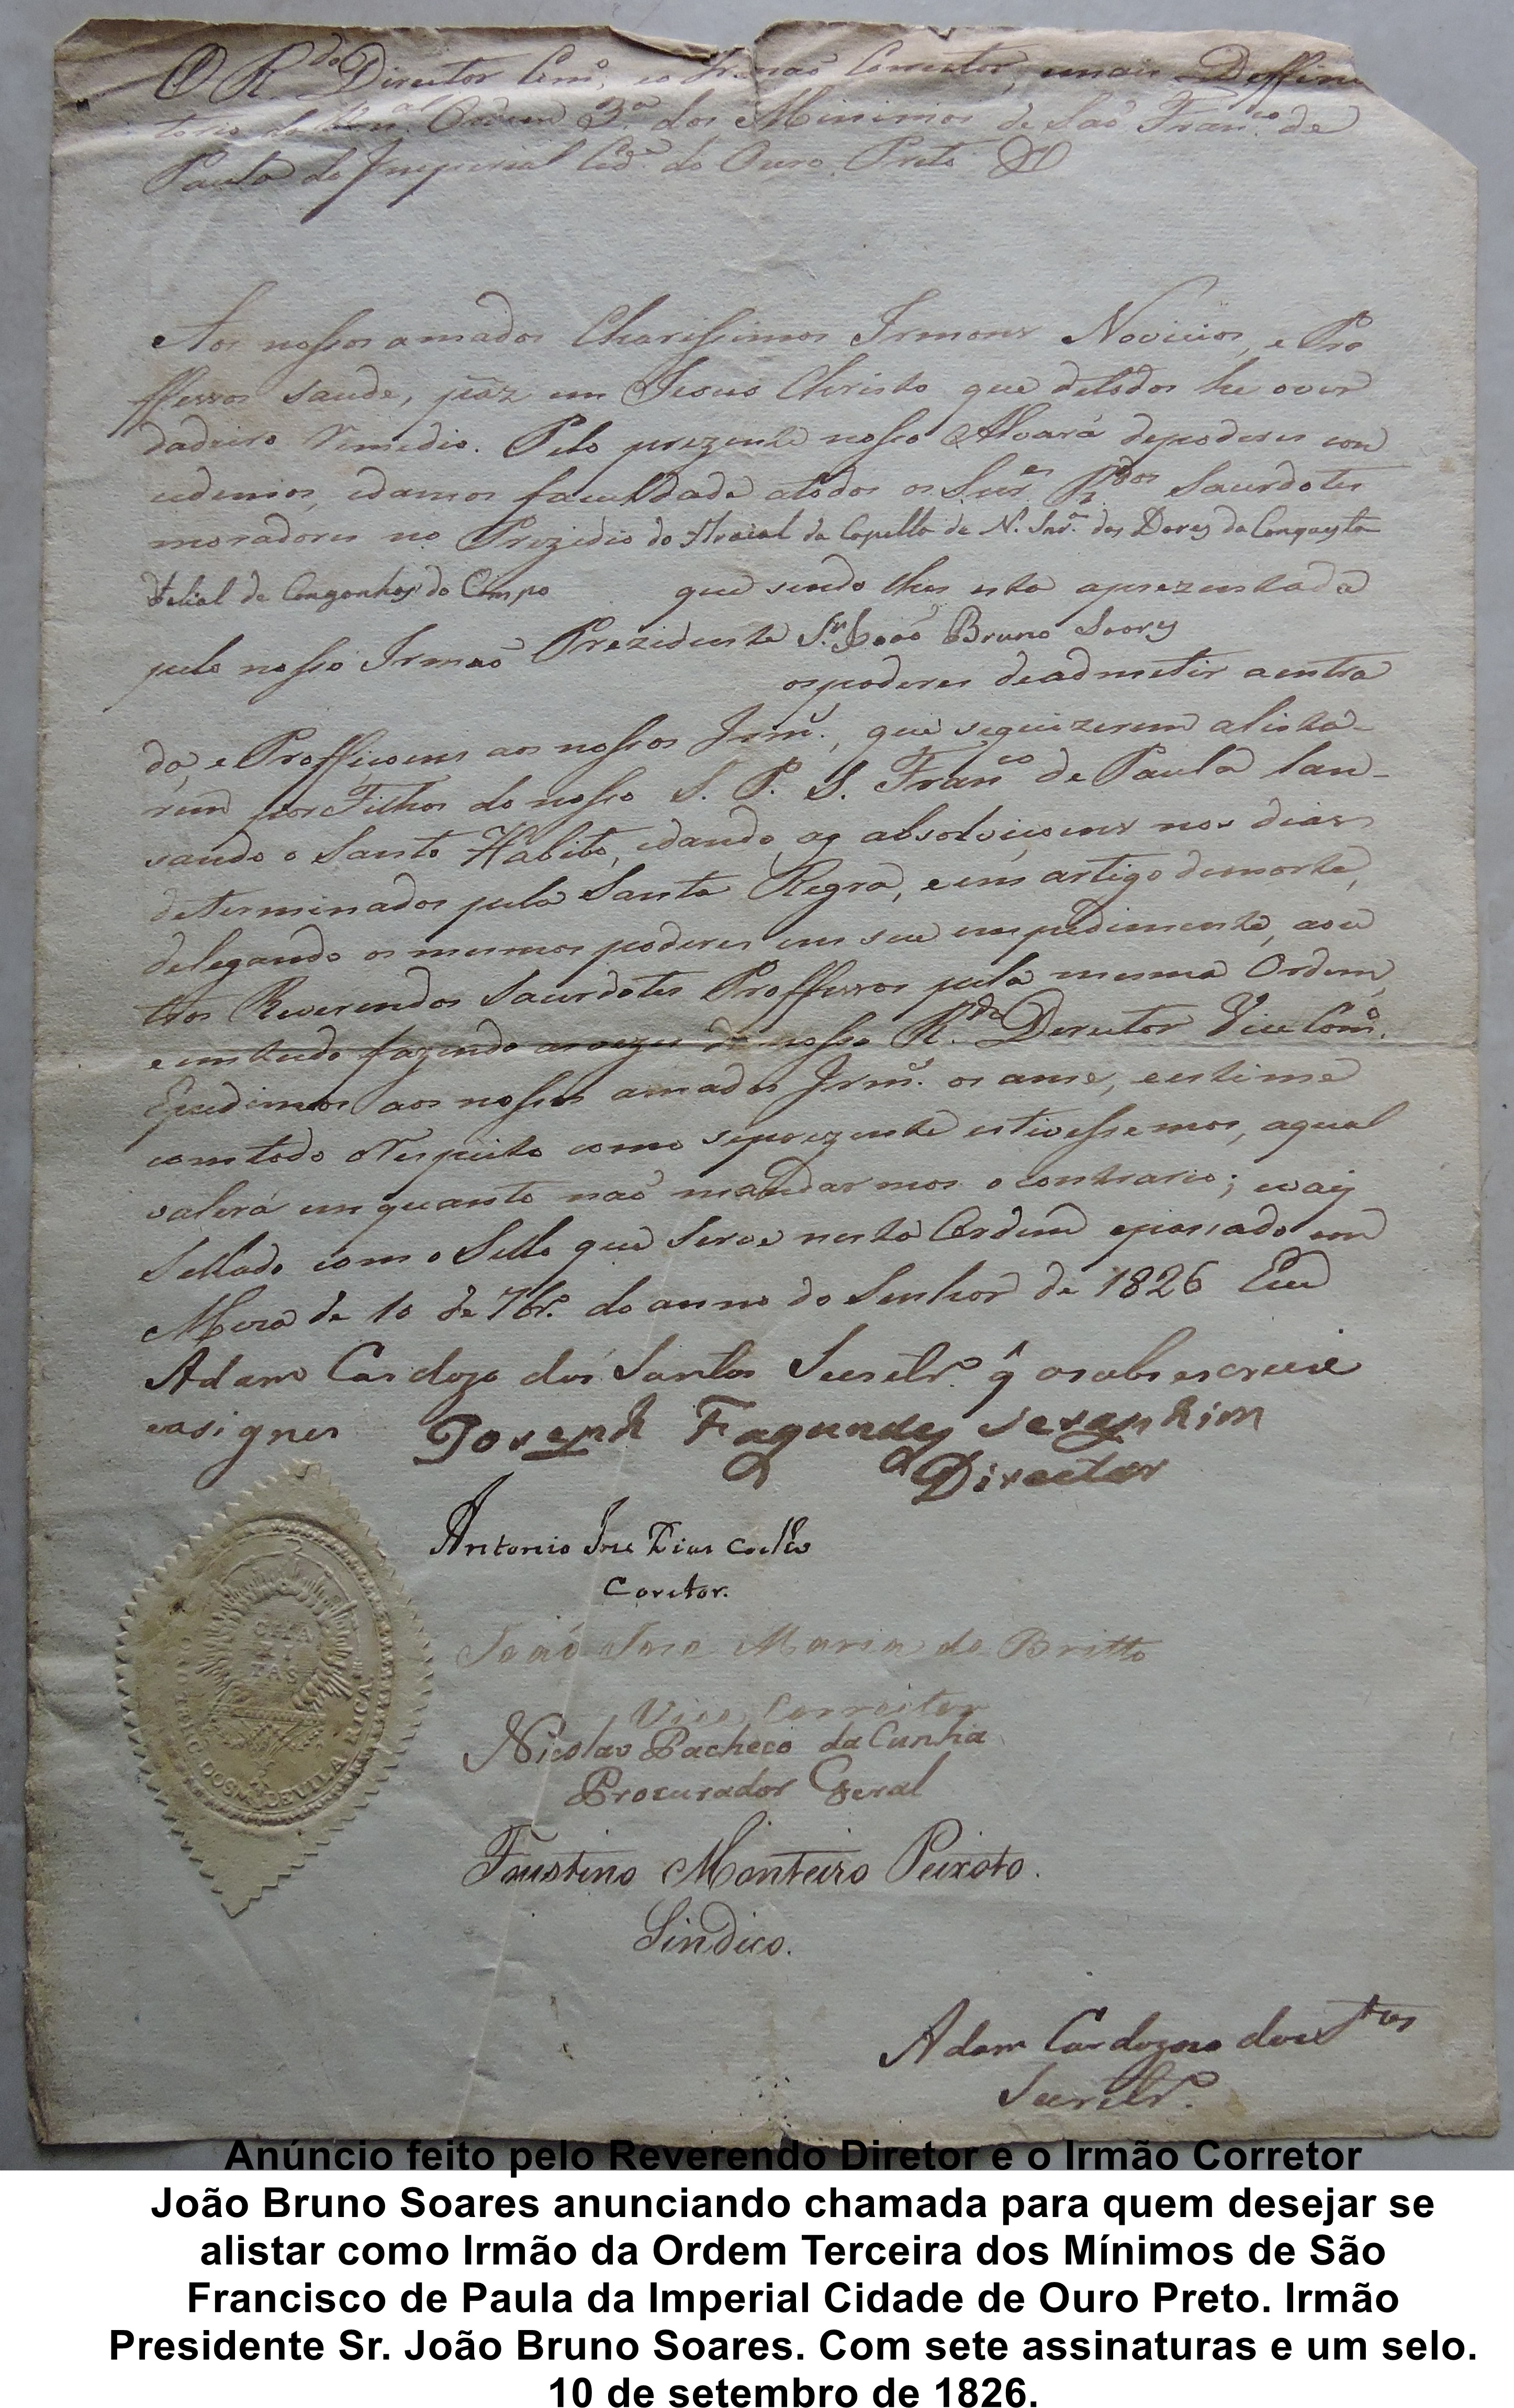 O R.do Director Com.o, e o Irmaõ Corrector, e mais Deffini
torio da Ven.al Ordem 3.a dos Minimos de Saõ Fran.co de
Paula da Imperial Cid.e do Ouro Preto
Aos nossos amados Charissimos Irmons Novicios, e Pro
ffessos saude, e paz em Jesus Christo que detodos he over
dadeiro Remedio. Pelo prezente nosso Alvará depoderes con
cedemos, edamos faculdade atodos os Snr.es R.dos Sacerdotes
moradores no Prezidio do Araial da Capella de N. Snr.a das Dores da Conquista
Felial de Congonhas do Campo que sendo lhes esta aprezentada
pelo nosso Irmaõ Prezidente S.r Joaõ Bruno Soares
ospoderes deadmetir aentra
da, e Proffiçoens aos nossos Irm.s, que sequizerem alista-
rem por Filhos do nosso S. P. S. Fran.co de Paula lan-
sando o Santo Habito, edando as absolviçoens nos dias
determinados pela Santa Regra, eem artigo demorte,
delegando os mesmos poderes em seu empedimento, aou
tros Reverendos Sacerdotes Proffessos pela mesma Ordem,
eemtudo fazendo asvezes de nosso R.do Derector Vice Com.o.
Epedimos aos nossos amados Irm.s. os ame, eestime
comtodo Respeito como seprezente estivessemos, aqual
valerá emquanto naõ mandarmos ocontrario; evay
Sellado com o Sello que Serve nesta Ordem epassado em
Meza de 10 de 7br.o do anno do Senhor de 1826 Eu
Adam Cardozo dos Santos Secretr.o q̂ osobescrevi
easignei Joseph Fagundes Seraphim
Director
Antonio Jose Dias Coelho
Coretor.
Joaõ Jose Maria de Britto
Vice Correitor
Nicolao Pacheco da Cunha
Procurador Geral
Faustino Monteiro Peixoto.
Sindico.
Adam Cardozo dos Stos
Secretr.o
CHA
RI
TAS
DOS M. DE VILA RICA
Anúncio feito pelo Reverendo Diretor e o Irmão Corretor
João Bruno Soares anunciando chamada para quem desejar se
alistar como Irmão da Ordem Terceira dos Mínimos de São
Francisco de Paula da Imperial Cidade de Ouro Preto. Irmão
Presidente Sr. João Bruno Soares. Com sete assinaturas e um selo.
10 de setembro de 1826.